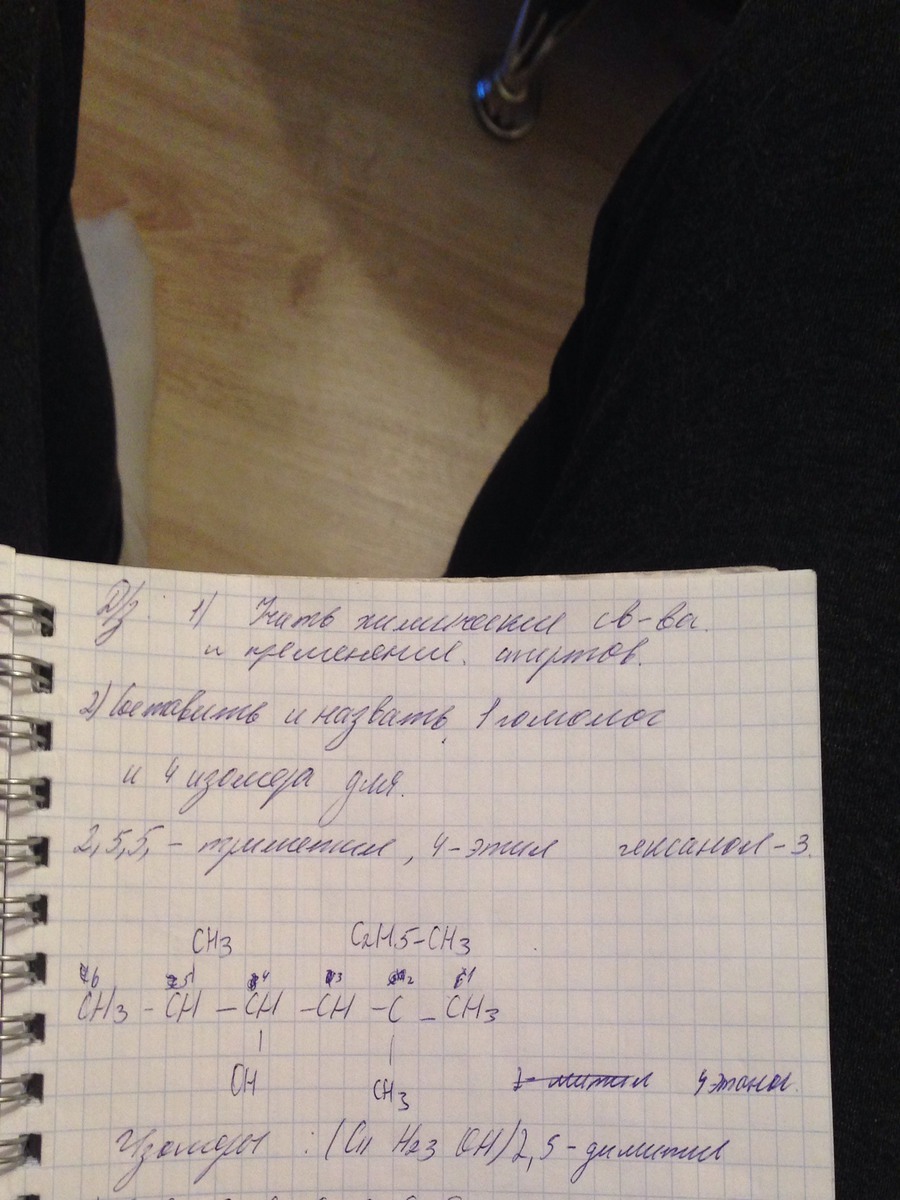 Д/з. 1) Учить химические св-ва.
и применения. спиртов.
2) Составить и назвать 1 гомолог
и 4 изомера для.
2,5,5,- триметил, 4-этил гексанол-3.
CH3 C2H5-CH3
6 5 4 3 2 1
CH3 - CH - CH - CH - C - CH3
OH CH3
4 этанол.
Изомеры : (C11 H23 OH) 2,5-диметил